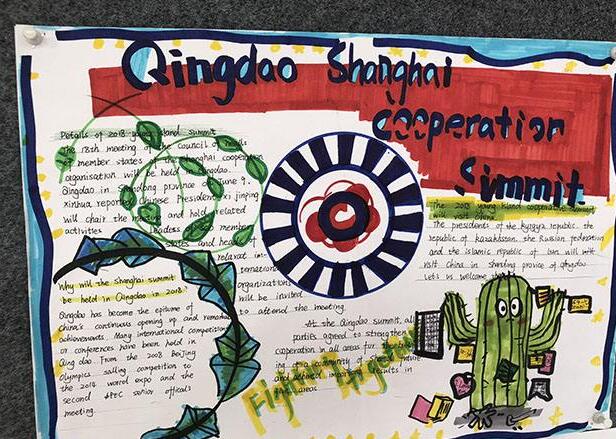 Qingdao Shanghai
Cooperation
Summit
Petails of 2018 young Island summit
The 18th meeting of the Council of
of member states Shanghai cooperation
organisation will be held
Qingdao in province June 9.
xinhua reported Chinese President xi jinping
will chair the meeting and hold related
activities leaders member
states and heads of
relevant in-
ternational
organizations
will be invited
to attend the meeting.
Why will the Shanghai summit
be held in Qingdao in 2018
Qingdao has become the epitome of
China's continuous opening up and remarkable
achievements. Many international competitions
or conferences have been held in
Qing dao. From the 2008 Beijing
Olympics sailing competition to
the 2014 world expo and the
second APEC senior officials
meeting.
At the Qingdao summit, all
parties agreed to strengthen
cooperation in all areas
of a community of
and achieved results in
areas
Fig
The 2018 young Island cooperative
will visit China
The presidents of the Kyrgyz republic, the
republic of kazakhstan, the Russian federation
and the islamic republic of Iran will
visit China in province of qingdao
Let us welcome